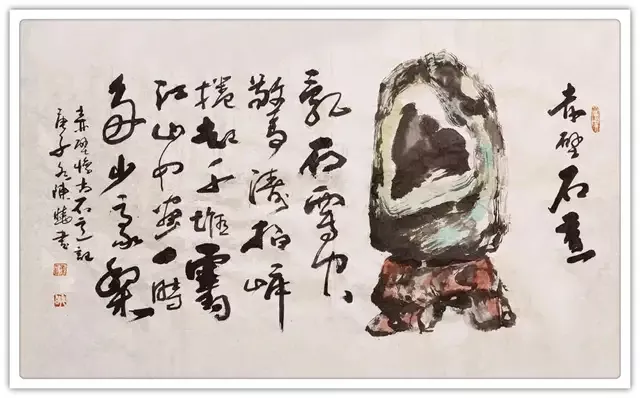 赤壁石意
乱石穿空
驚涛拍岸
捲起千堆雪
江山如画一時
多少豪傑
赤壁懷古石意記
庚子冬陳書